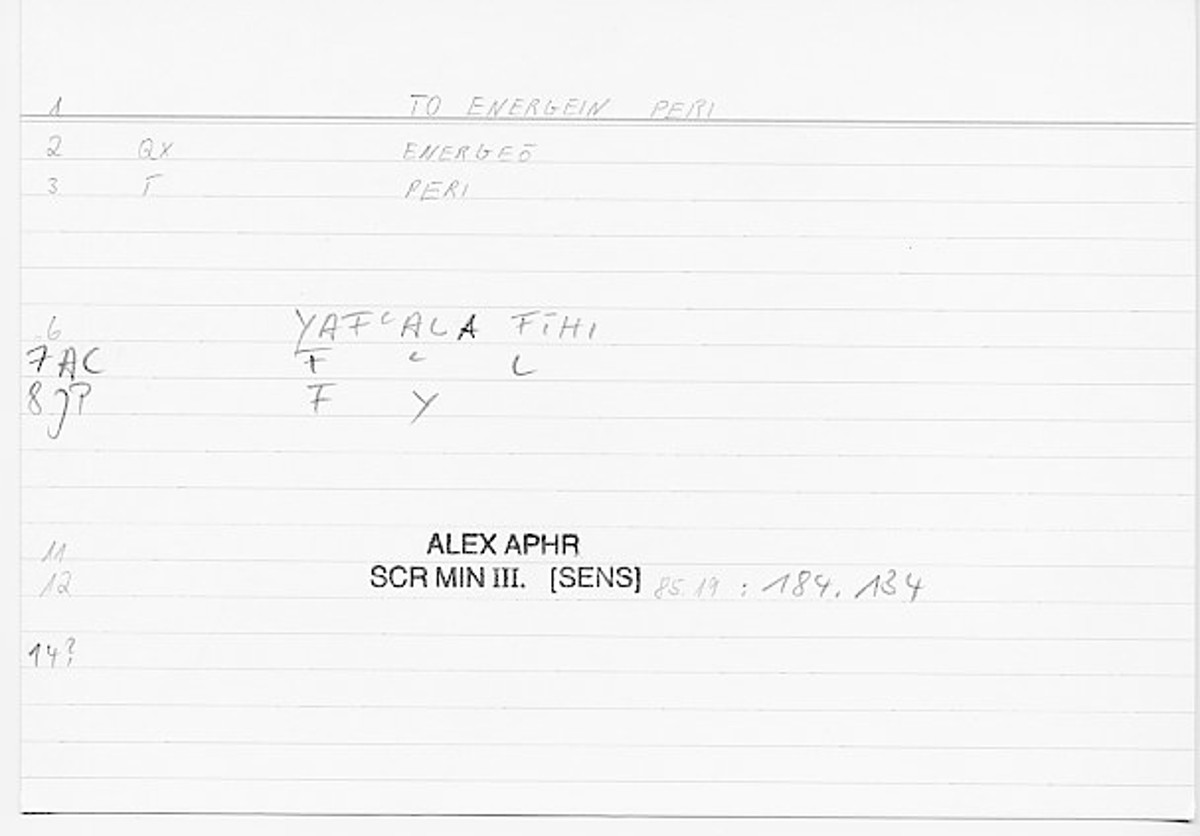 1 TO ENERGEIN PERI
2 QX ENERGEŌ
3 T PERI
6 YAFᶜALA FĪHI
7 AC F ᶜ L
8 JP F Y
11 ALEX APHR
12 SCR MIN III. [SENS] 85.19 : 184.134
14?